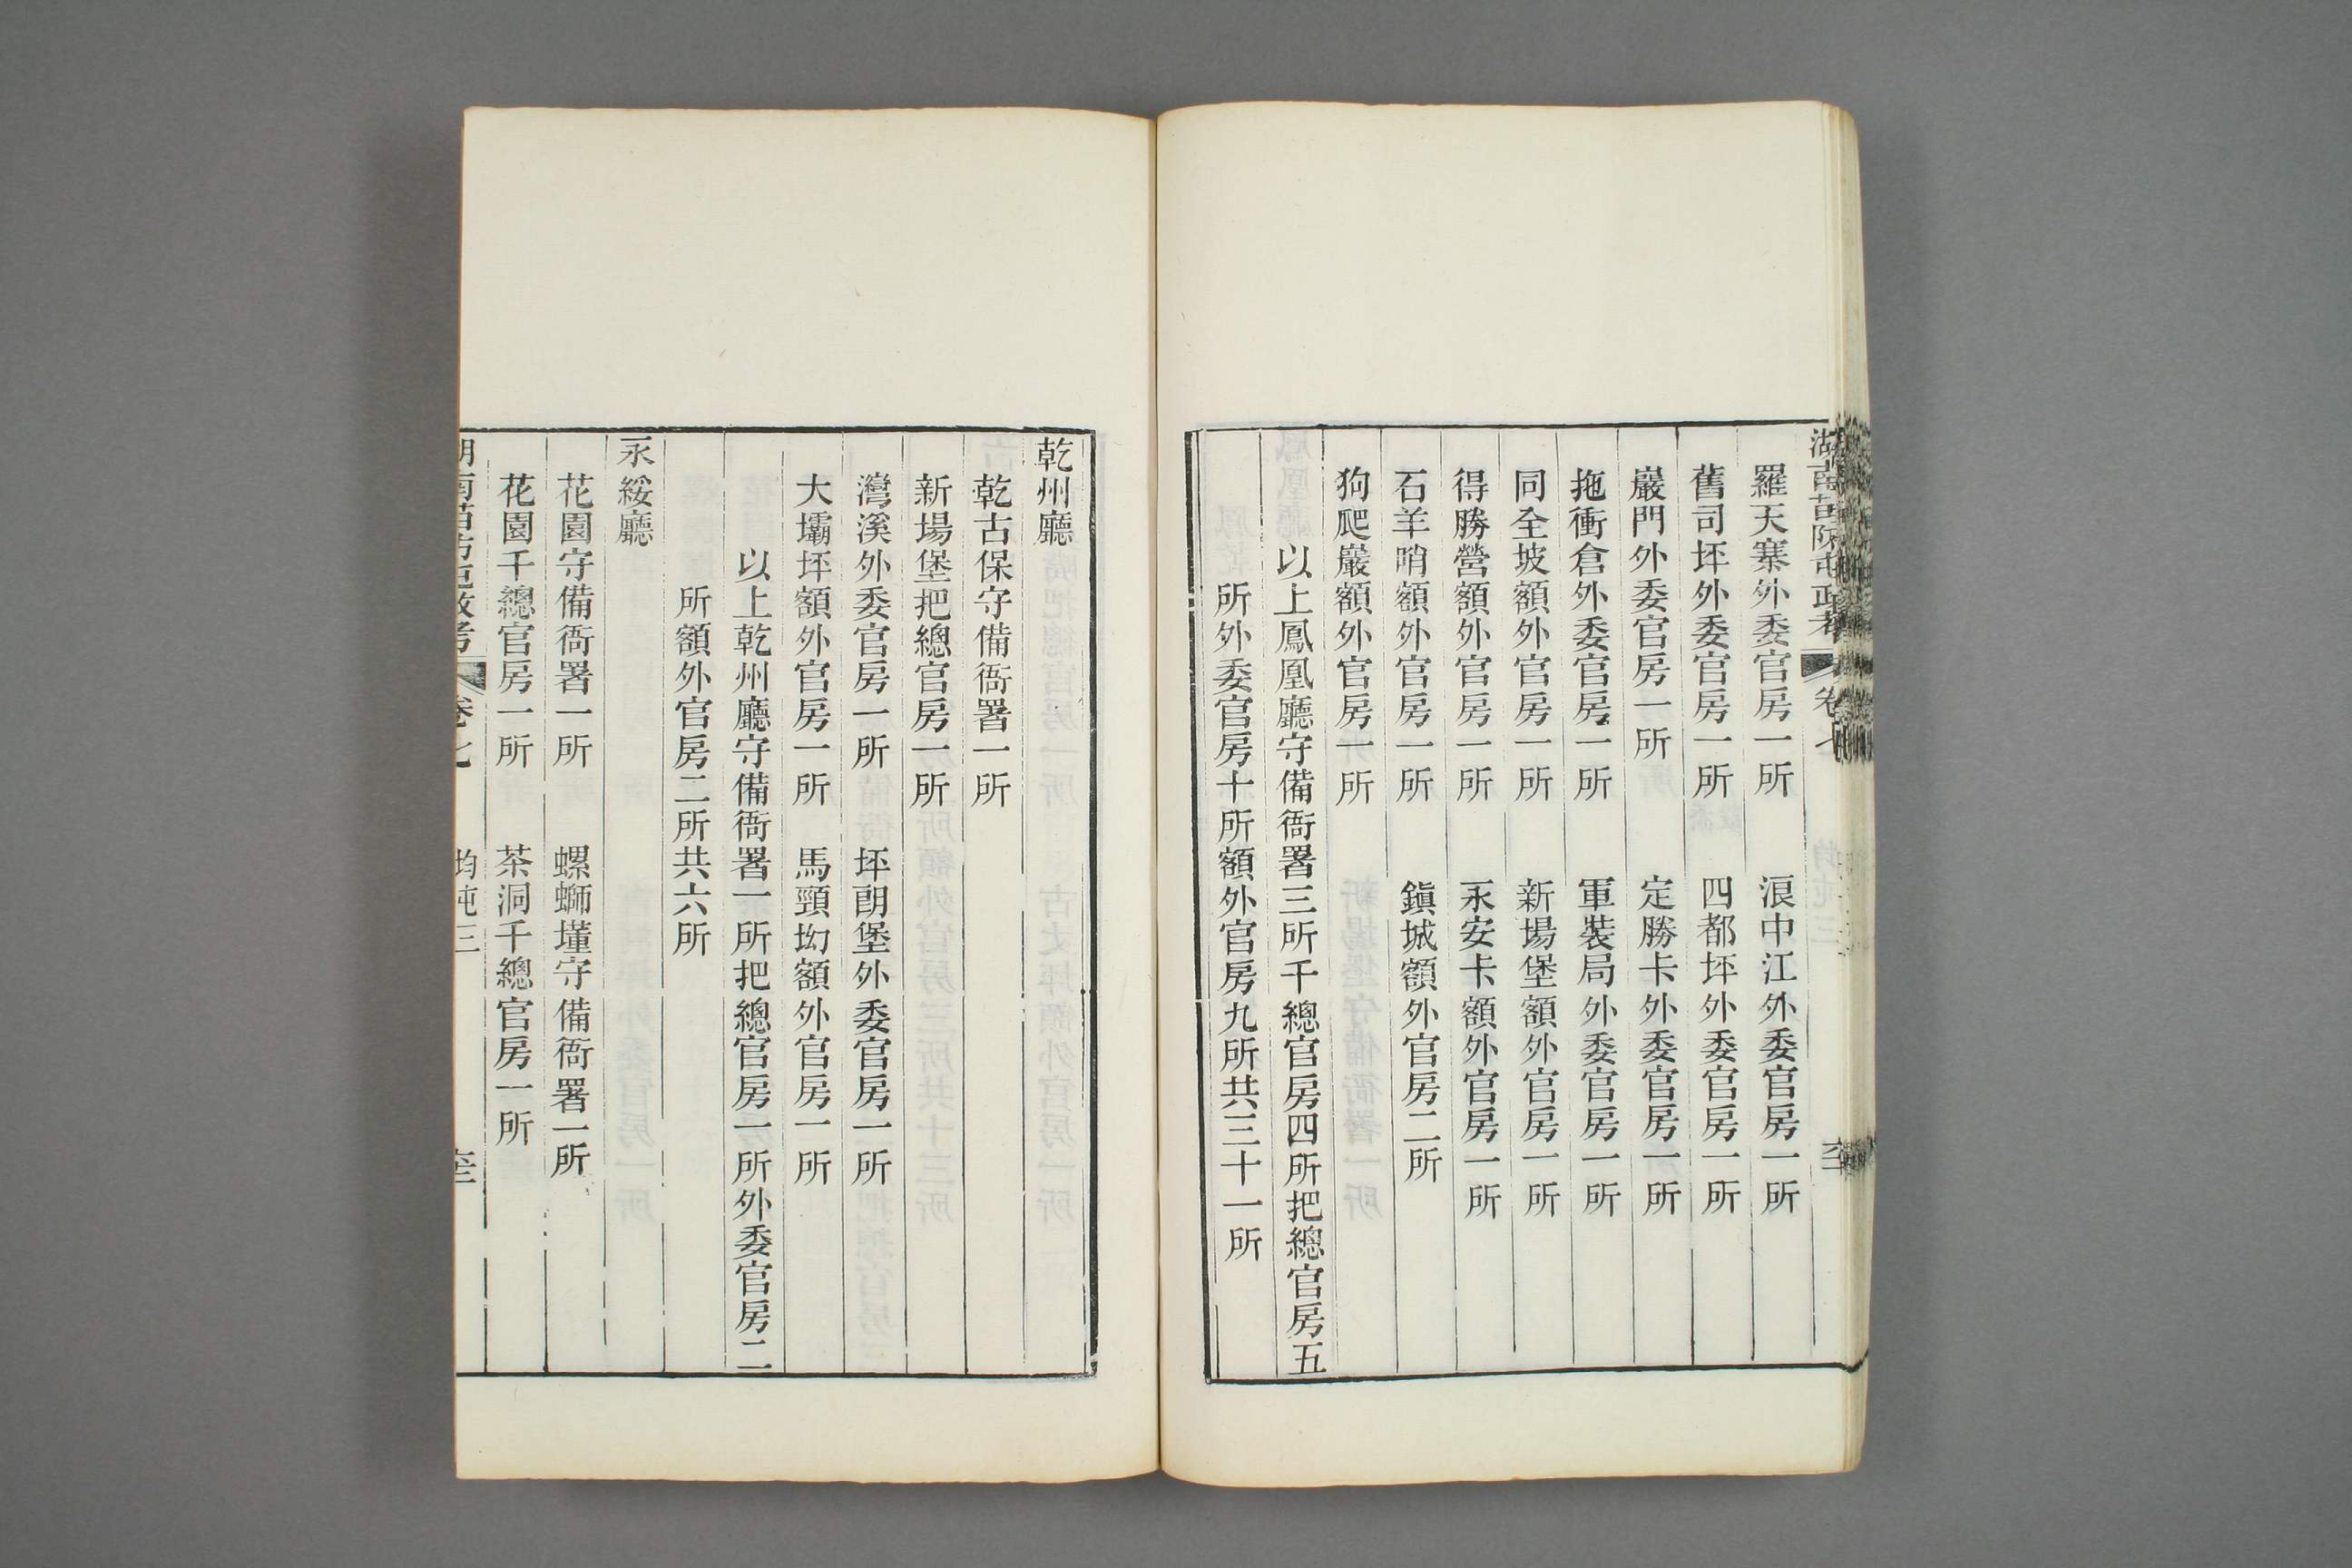 湖南苗防屯政考　卷七
羅天寨外委官房一所　浪中江外委官房一所
舊司坪外委官房一所　四都坪外委官房一所
巖門外委官房一所　定勝卡外委官房一所
拖衝倉外委官房一所　軍裝局外委官房一所
同全坡額外官房一所　新場堡額外官房一所
得勝營額外官房一所　永安卡額外官房一所
石羊哨額外官房一所　鎭城額外官房二所
狗爬巖額外官房一所
以上鳳凰廳守備衙署三所千總官房四所把總官房五
所外委官房十所額外官房九所共三十一所
乾州廳
乾古保守備衙署一所
新場堡把總官房一所
灣溪外委官房一所　坪朗堡外委官房一所
大壩坪額外官房一所　馬頸坳額外官房一所
以上乾州廳守備衙署一所把總官房一所外委官房二
所額外官房二所共六所
永綏廳
花園守備衙署一所　螺螄墐守備衙署一所
花園千總官房一所　茶洞千總官房一所
湖南苗防屯政考　卷七　均屯三